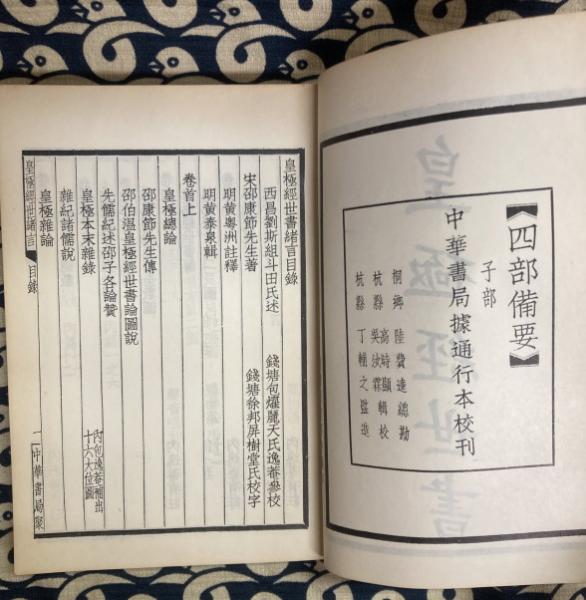 【四部備要】
子部
中華書局據通行本校刊
桐鄉 陸費逵總勘
杭縣 高時顯輯校
杭縣 吳汝霖輯校
杭縣 丁輔之監造
皇極經世書緒言目錄
西昌劉斯組斗田氏述 錢塘包燿麗天氏逸菴參校
宋邵康節先生著 錢塘徐邦屏樹堂氏校字
明黃粵洲註釋
明黃泰泉輯
卷首上
皇極總論
邵康節先生傳
邵伯溫皇極經世書論圖說
先儒紀述邵子各論贊
皇極本末雜錄 內包逸菴補出十六大位圖
雜紀諸儒說
皇極雜論
皇極經世緒言 目錄 一 中華書局聚